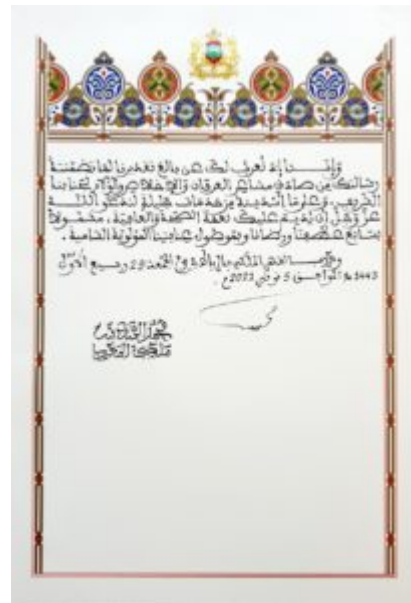 وإننا إذ نعرب لك عن بالغ تقديرنا لما تضمنته
رسالتك من صادق مشاعر العرفان والإخلاص والولاء لجنابنا
الشريف، وعلى ما أنت بسبيله من خدمات جليلة، لندعو الله
عز وجل أن يديم عليك نعمة الصحة والعافية، محفوفا
بسابغ عطفنا ورضانا وبموصول عنايتنا المولوية السامية.
وحرر بالقصر الملكي بالرباط في الجمعة 29 ربيع الأول
1443 هـ الموافق 5 نوفمبر 2021م.
محمد السادس
ملك المغرب